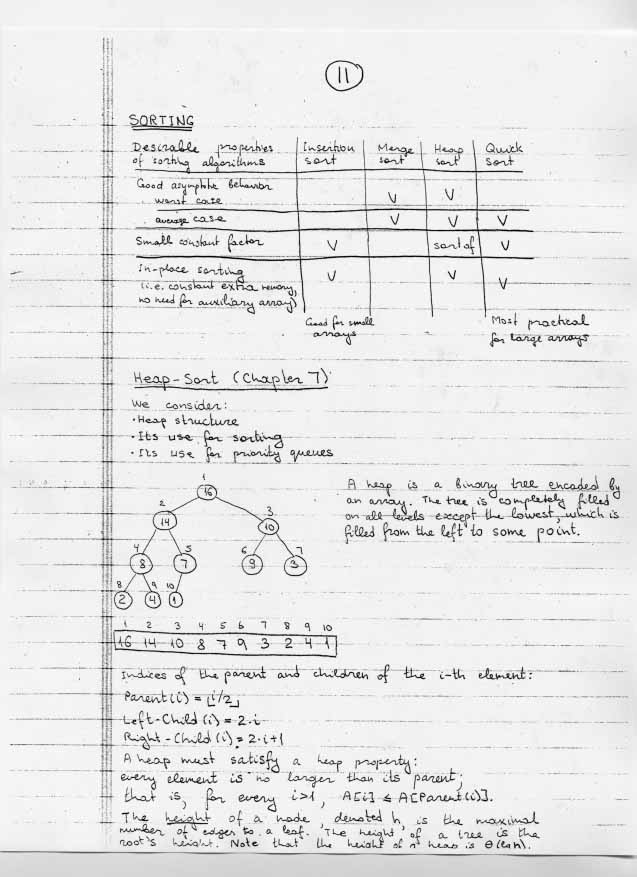 11
SORTING
Desirable properties of sorting algorithms | Insertion sort | Merge sort | Heap sort | Quick sort
Good asymptotic behavior
worst case | | V | V |
average case | | V | V | V
Small constant factor | V | | sort of | V
In-place sorting (i.e. constant extra memory, no need for auxiliary array) | V | | V | V
Good for small arrays
Most practical for large arrays
Heap-Sort (Chapter 7)
We consider:
• Heap structure
• Its use for sorting
• Its use for priority queues
A heap is a binary tree encoded by
an array. The tree is completely filled
on all levels except the lowest, which is
filled from the left to some point.
1
16
2 3
14 10
4 5 6 7
8 7 9 3
8 9 10
2 4 1
1 2 3 4 5 6 7 8 9 10
16 14 10 8 7 9 3 2 4 1
Indices of the parent and children of the i-th element:
Parent(i) = ⌊i/2⌋
Left-Child(i) = 2·i
Right-Child(i) = 2·i+1
A heap must satisfy a heap property:
every element is no larger than its parent;
that is, for every i>1, A[i] ≤ A[Parent(i)].
The height of a node, denoted h, is the maximal
number of edges to a leaf. The height of a tree is the
root's height. Note that the height of heap is Θ(lg n).